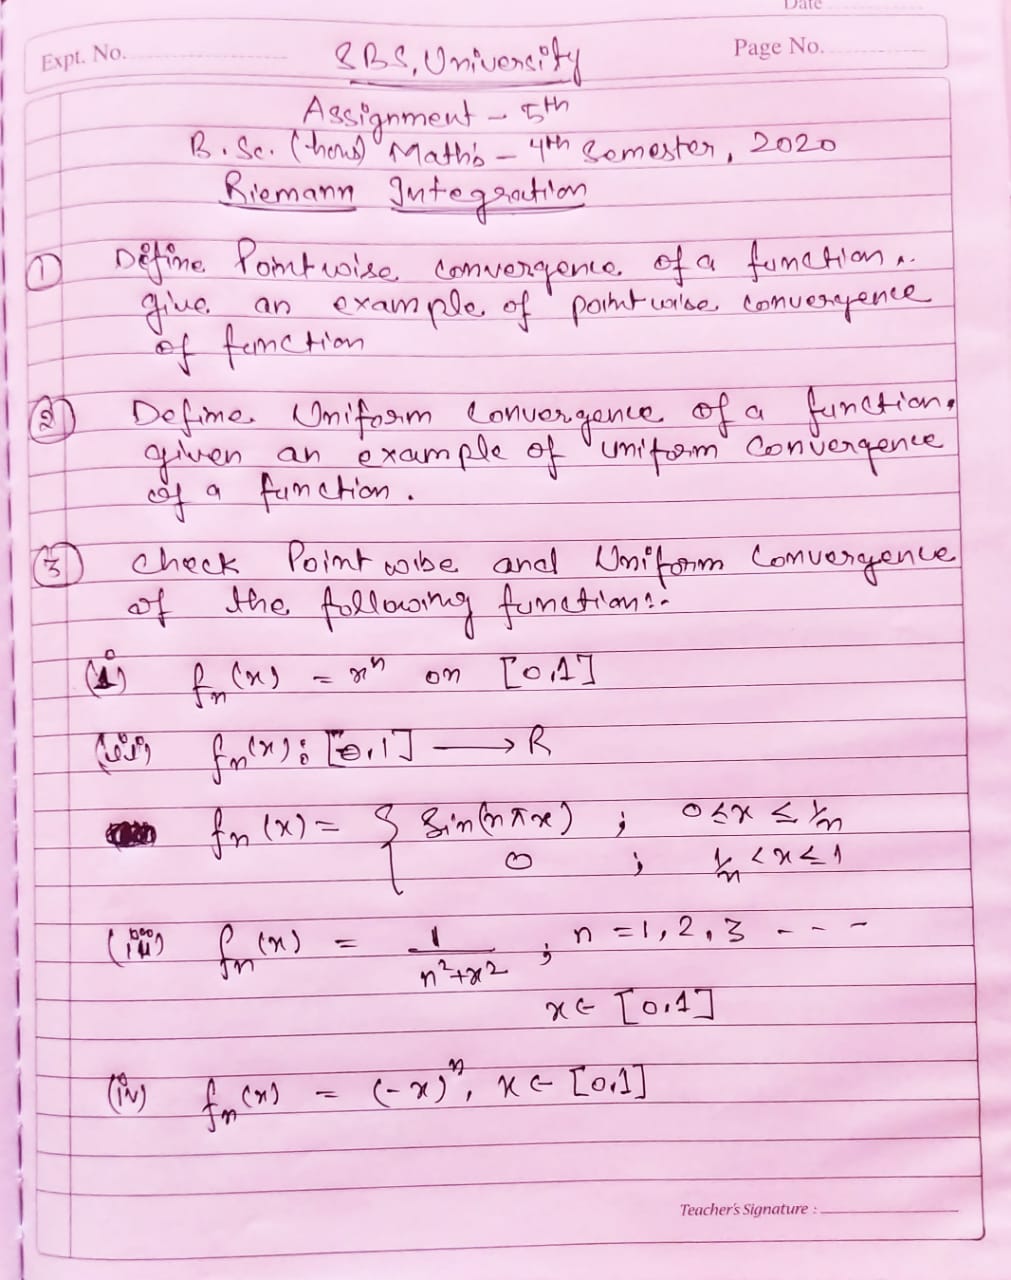 Date
Expt. No.
Page No.
SBS, University
Assignment - 5th
B.Sc. (hons) Math's - 4th Semester, 2020
Riemann Integration
① Define Pointwise convergence of a function.
give an example of pointwise convergence
of function
② Define Uniform Convergence of a function.
given an example of uniform convergence
of a function.
③ Check Pointwise and Uniform Convergence
of the following function:-
(i) fₙ(x) = xⁿ on [0,1]
(ii) fₙ(x): [0,1] ⟶ R
fₙ(x) = { Sin(nπx) ; 0≤x≤1/n
0 ; 1/n<x≤1
(iii) fₙ(x) = 1/(n²+x²) ; n = 1, 2, 3 - - -
x ∈ [0,1]
(iv) fₙ(x) = (-x)ⁿ, x ∈ [0,1]
Teacher's Signature :